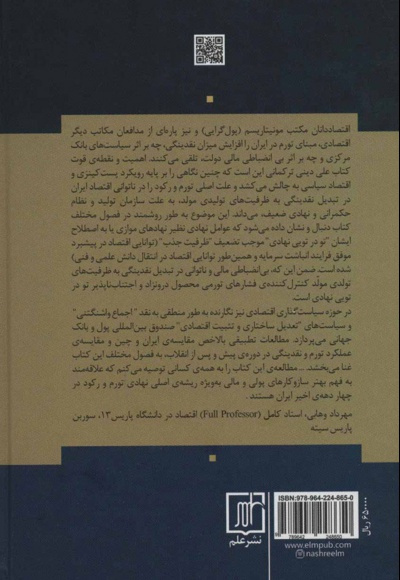 اقتصاددانان مکتب مونیتاریسم (پول‌گرایی) و نیز پاره‌ای از مدافعان مکاتب دیگر
اقتصادی، مبنای تورم در ایران را افزایش میزان نقدینگی، چه بر اثر سیاست‌های بانک
مرکزی و چه بر اثر بی انضباطی مالی دولت، تلقی می‌کنند. اهمیت و نقطه‌ی قوت
کتاب علی دینی ترکمانی این است که چنین نگاهی را بر پایه رویکرد پست‌کینزی و
اقتصاد سیاسی به چالش می‌کشد و علت اصلی تورم و رکود را در ناتوانی اقتصاد ایران
در تبدیل نقدینگی به ظرفیت‌های تولیدی مولد، به علت سازمان تولید و نظام
حکمرانی و نهادی ضعیف، می‌داند. این موضوع به طور روشمند در فصول مختلف
کتاب دنبال و نشان داده می‌شود که عوامل نهادی نظیر نهادهای موازی یا به اصطلاح
ایشان "تو در تویی نهادی" موجب تضعیف "ظرفیت جذب" (توانایی اقتصاد در پیشبرد
موفق فرایند انباشت سرمایه و همین‌طور توانایی اقتصاد در انتقال دانش علمی و فنی)
شده است. ضمن این که، بی‌انضباطی مالی و ناتوانی در تبدیل نقدینگی به ظرفیت‌های
تولدی مولّد کنترل‌کننده‌ی فشارهای تورمی محصول درونزاد و اجتناب‌ناپذیر تو در
تویی نهادی است.
در حوزه سیاست‌گذاری اقتصادی نیز نگارنده به طور منطقی به نقد "اجماع واشنگتنی"
و سیاست‌های "تعدیل ساختاری و تثبیت اقتصادی" صندوق بین‌المللی پول و بانک
جهانی می‌پردازد. مطالعات تطبیقی بالاخص مقایسه‌ی ایران و چین و مقایسه‌ی
عملکرد تورم و نقدینگی در دوره‌ی پیش و پس از انقلاب، به فصول مختلف این کتاب
غنا می‌بخشد. .. مطالعه‌ی این کتاب را به همه‌ی کسانی توصیه می‌کنم که علاقه‌مند
به فهم بهتر سازوکارهای پولی و مالی به‌ویژه ریشه‌ی اصلی نهادی تورم و رکود در
چهار دهه‌ی اخیر ایران هستند .
مهرداد وهابی، استاد کامل (Full Professor) اقتصاد در دانشگاه پاریس ۱۳، سوربن
پاریس سیته
ISBN: 978-964-224-865-0
9 789642 248650
www.elmpub.com
nashreelm
نشر علم
۶۵۰۰۰۰ ریال